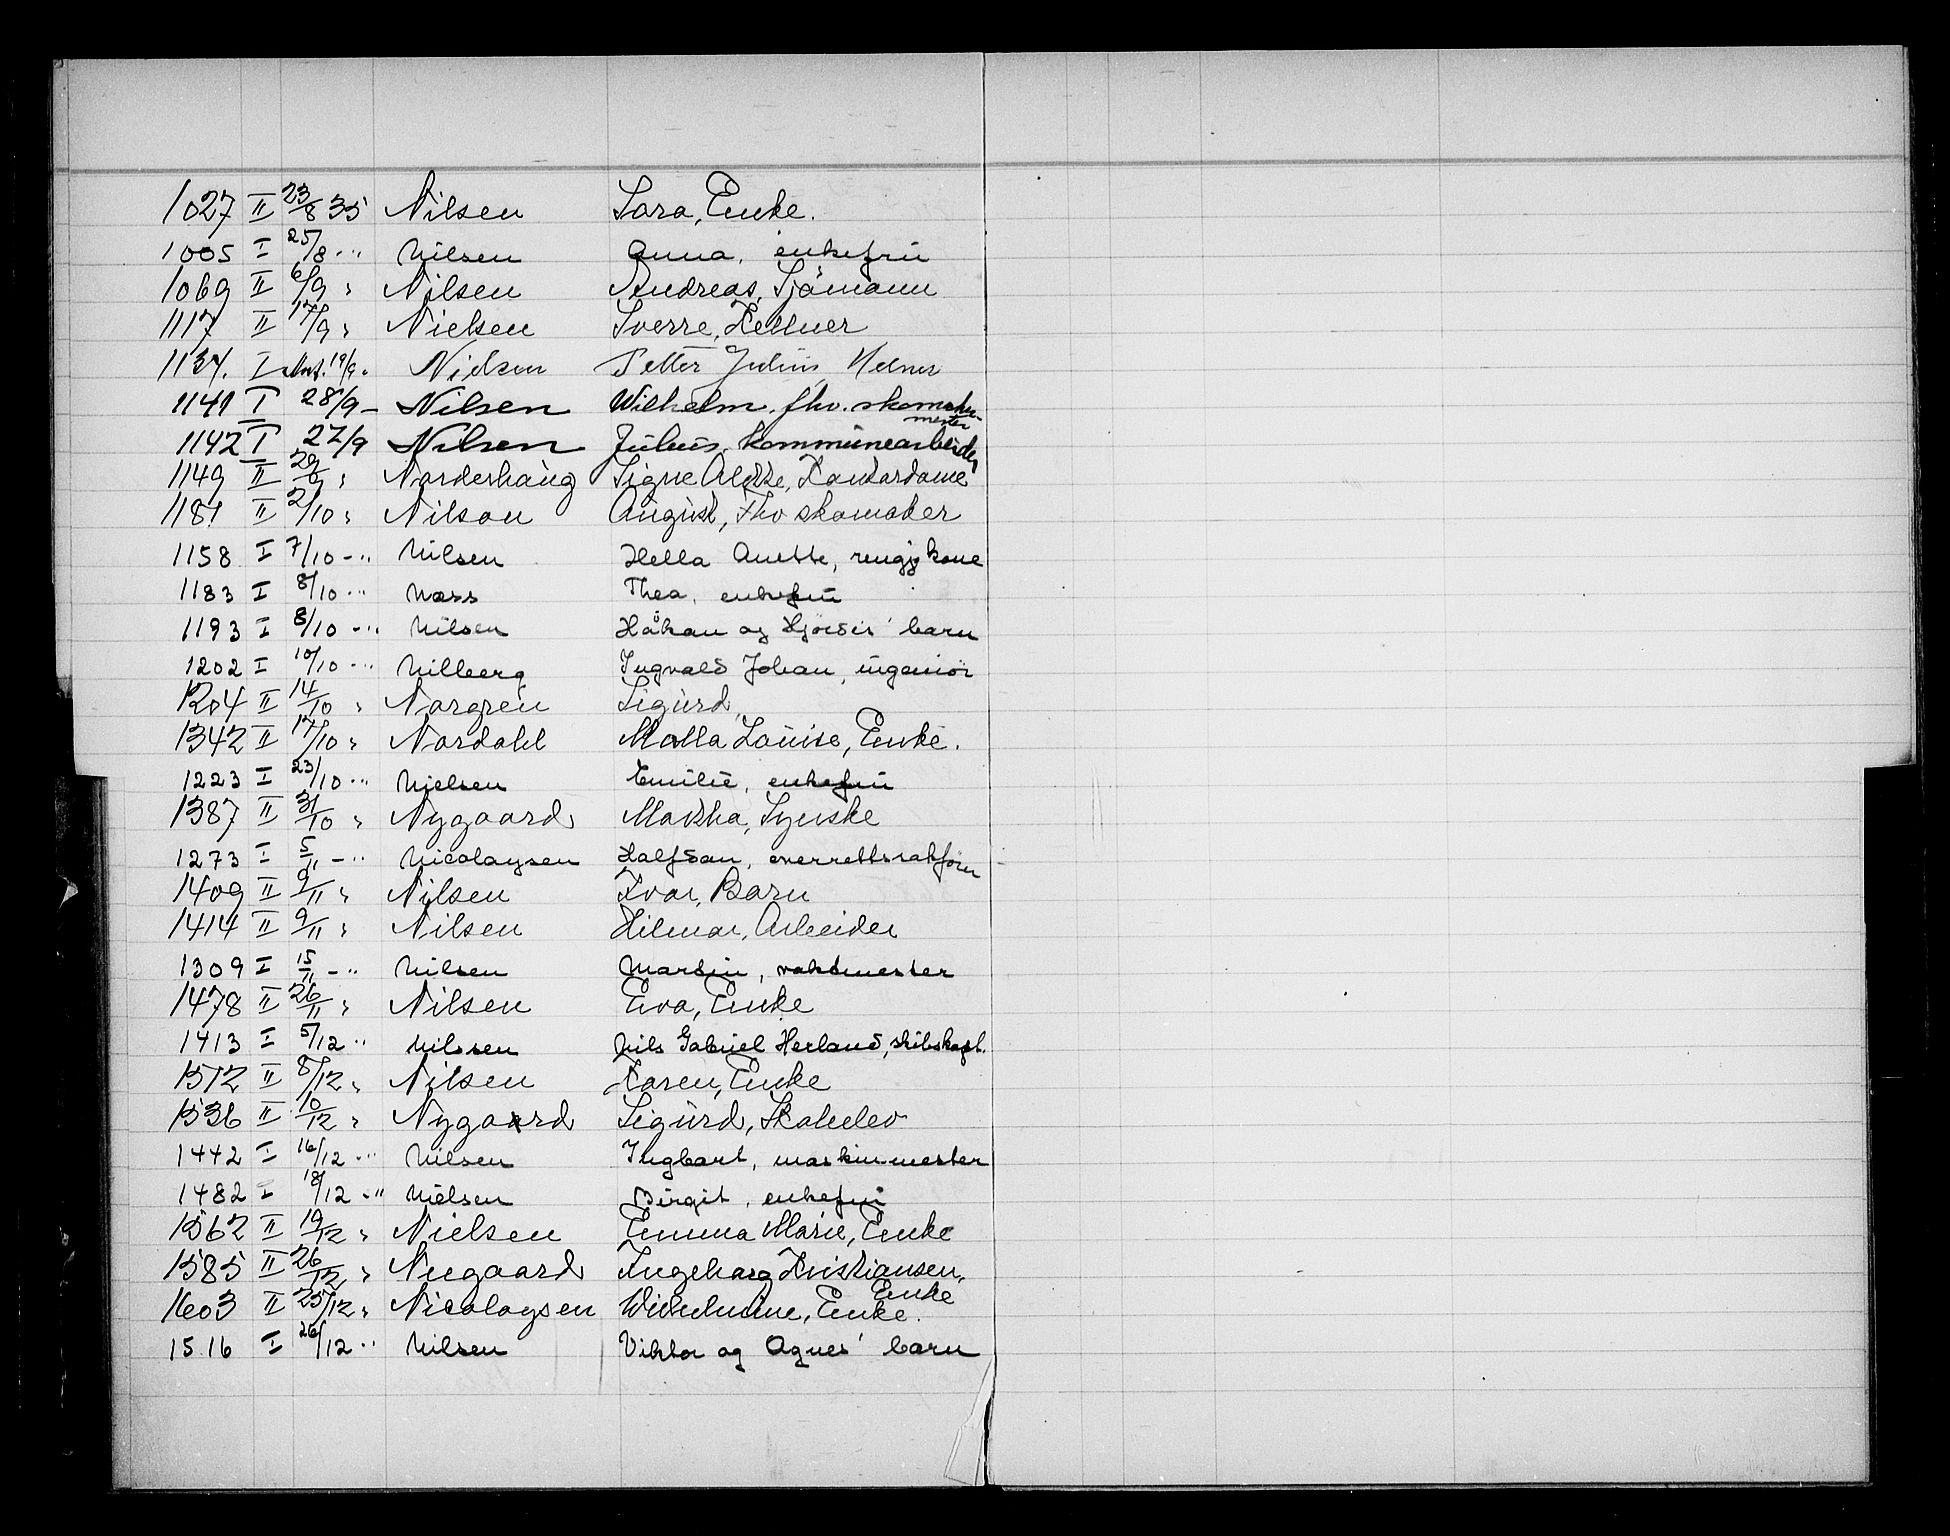 1027 II 23/8 35 Nilsen Sara, Enke.
1005 I 25/8 -" Nilsen Anna, enkefru
1069 II 6/9 " Nilsen Andreas, Sjömann
1117 II 17/9 " Nielsen Sverre, Kellner
1134. I 19/9 " Nielsen Petter Julius
1141 I 28/9 - Nilsen Wilhelm, fhv. skomaker-
mester
1142 I 27/9 Nilsen Julius, kommunearbeider
1149 II " Norderhaug Signe Alette, Kontordame
1181 II 2/10 " Nilson August, Fhv skomaker
1158 I 7/10 -" Nilsen Hella Anette, rengj kone
1183 I 8/10 -" Næss Thea, enkefru
1193 I 8/10 -" Nilsen Håkon og Hjördis' barn
1202 I 10/10 -" Nilberg Ingvald Johan, ingeniör
1204 II 14/10 " Norgren Sigurd,
1342 II 17/10 " Nordahl Malla Louise, Enke.
1223 I 23/10 -" Nielsen Emilie, enkefru
1387 II 31/10 " Nygaard Martha, Syerske
1273 I 5/11 -" Nicolaysen Halfdan, overrettssakförer
1409 II 9/11 " Nilsen Ivar, Barn
1414 II 9/11 " Nilsen Hilmar, Arbeider
1309 I 15/11 -" Nilsen Martin, vaktmester
1478 II 26/11 " Nilsen Eva, Enke
1413 I 5/12 " Nilssen Nils Gabriel Herland, skibskapt.
1512 II 8/12 " Nilsen Karen, Enke
1536 II 10/12 " Nygaard Sigurd, Skoleelev
1442 I 16/12 -" Nilsen Ingbart, maskinmester
1482 I 18/12 -" Nielsen Birgit, enkefru
1562 II 19/12 " Nielsen Emma Marie, Enke
1585 II 26/12 " Neegaard Ingeborg Kristiansen,
Enke
1603 II 25/12 " Nicolaysen Wilhelmine, Enke.
1516 I 26/12 " Nilsen Viktor og Agnes' barn